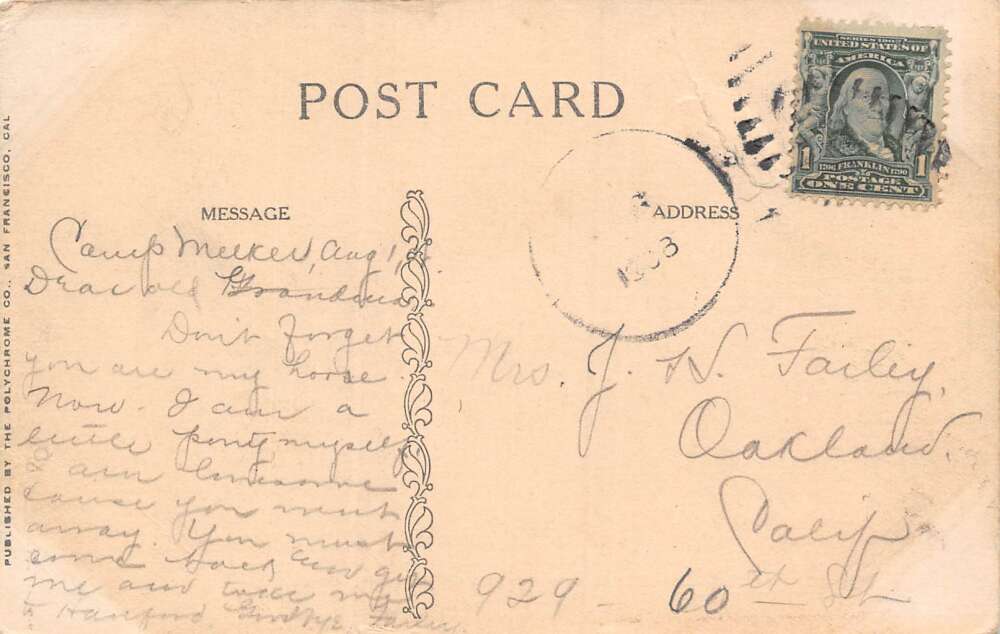 POST CARD
SERIES 1902
UNITED STATES OF
AMERICA
1 FRANKLIN 1
POSTAGE
ONE CENT
MESSAGE
ADDRESS
1908
Camp Meeker, Aug 1,
Dear old Grandma
Don't forget
you are my horse.
Now. I am a
little pony myself
am lonesome
cause you went
away. You must
come back and get
me and take me
Hanford. Goodbye
Mrs. J. W. Failey,
Oakland.
Calif
929 - 60th St
PUBLISHED BY THE POLYCHROME CO., SAN FRANCISCO, CAL